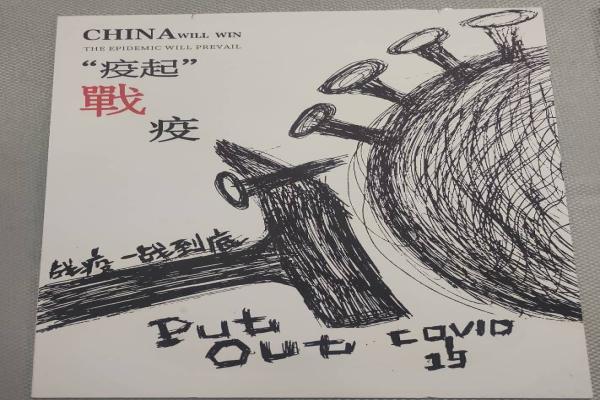 CHINA WILL WIN
THE EPIDEMIC WILL PREVAIL
“疫起”
戰
疫
战疫 一战到底
Put
Out
COVID
19